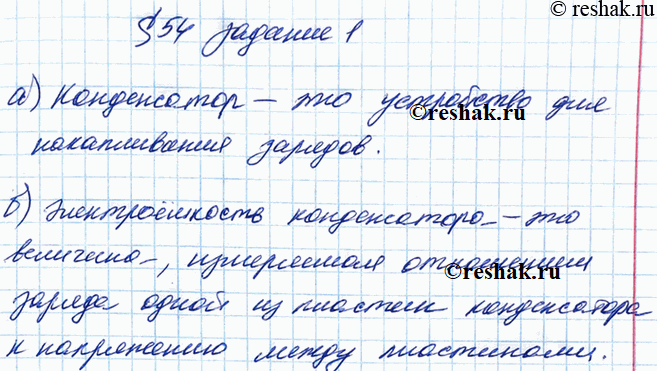 © reshak.ru
§54 задание 1
а) Конденсатор – это устройство для
©reshak.ru
накапливания зарядов.
б) Электроёмкость конденсатора – это
величина, измеряемая отношением
©reshak.ru
заряда одной из пластин конденсатора
к напряжению между пластинами.
© reshak.ru